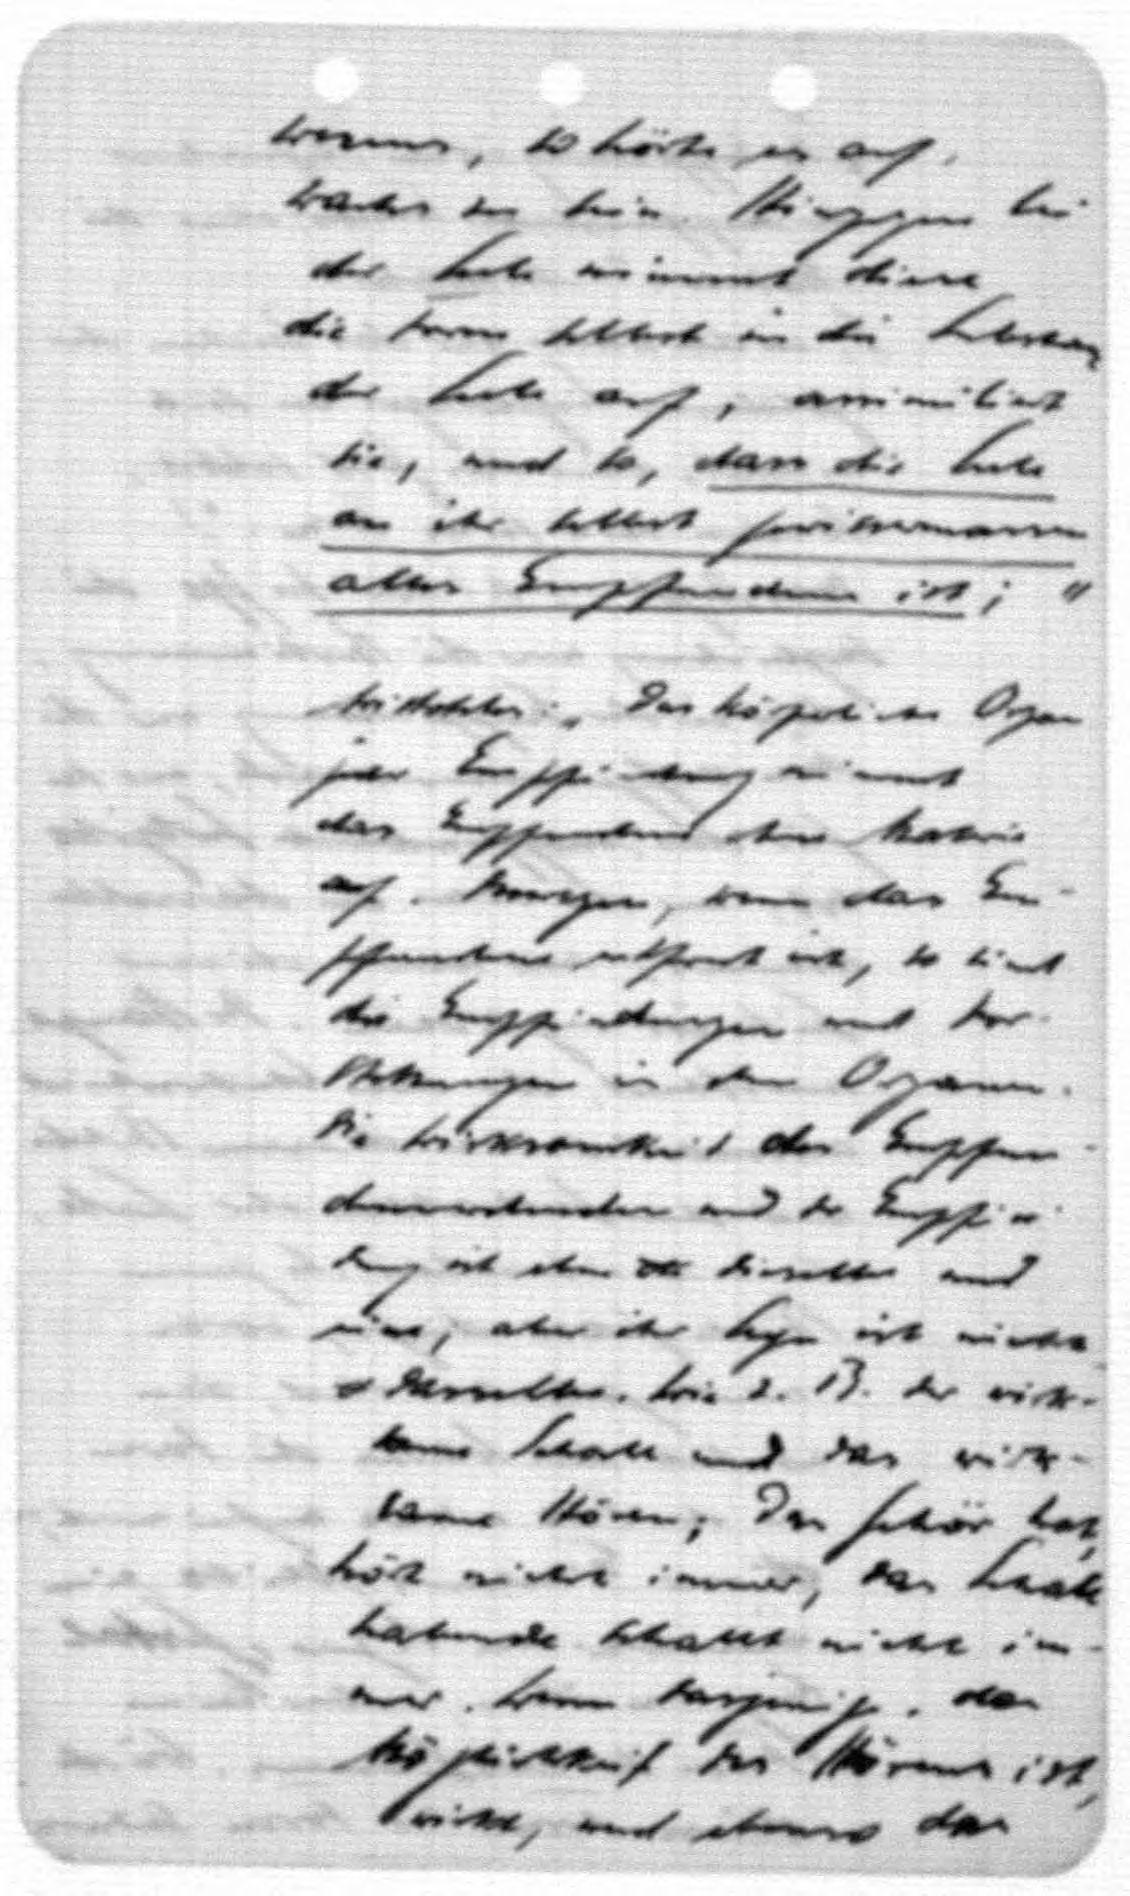 warum, so hörte es auf,
Wachs zu sein. Hingegen bei
der Seele nimmt diese
die Form selbst in die Substanz
der Seele auf, assimiliert
sie, und so, dass die Seele
an ihr selbst gewissermassen
alles Empfundene ist; "
Aristoteles: „Das körperliche Organ
jeder Empfindung nimmt
das Empfundene ohne Materie
auf. Deswegen, wenn das Em-
pfundene entfernt ist, so sind
die Empfindungen und Vor-
stellungen in den Organen.
Die Wirksamkeit des Empfun-
denwerdenden und der Empfin-
dung ist eben dieselbe und
eine, aber ihr Sein ist nicht
dasselbe. Wie z. B. der wirk-
same Schall und das wirk-
same Hören; Das Gehör hat,
hört nicht immer, das Schall
habende schallt nicht im-
mer. Wenn dasjenige, das
Möglichkeit des Hörens ist,
wirkt, und ebenso das